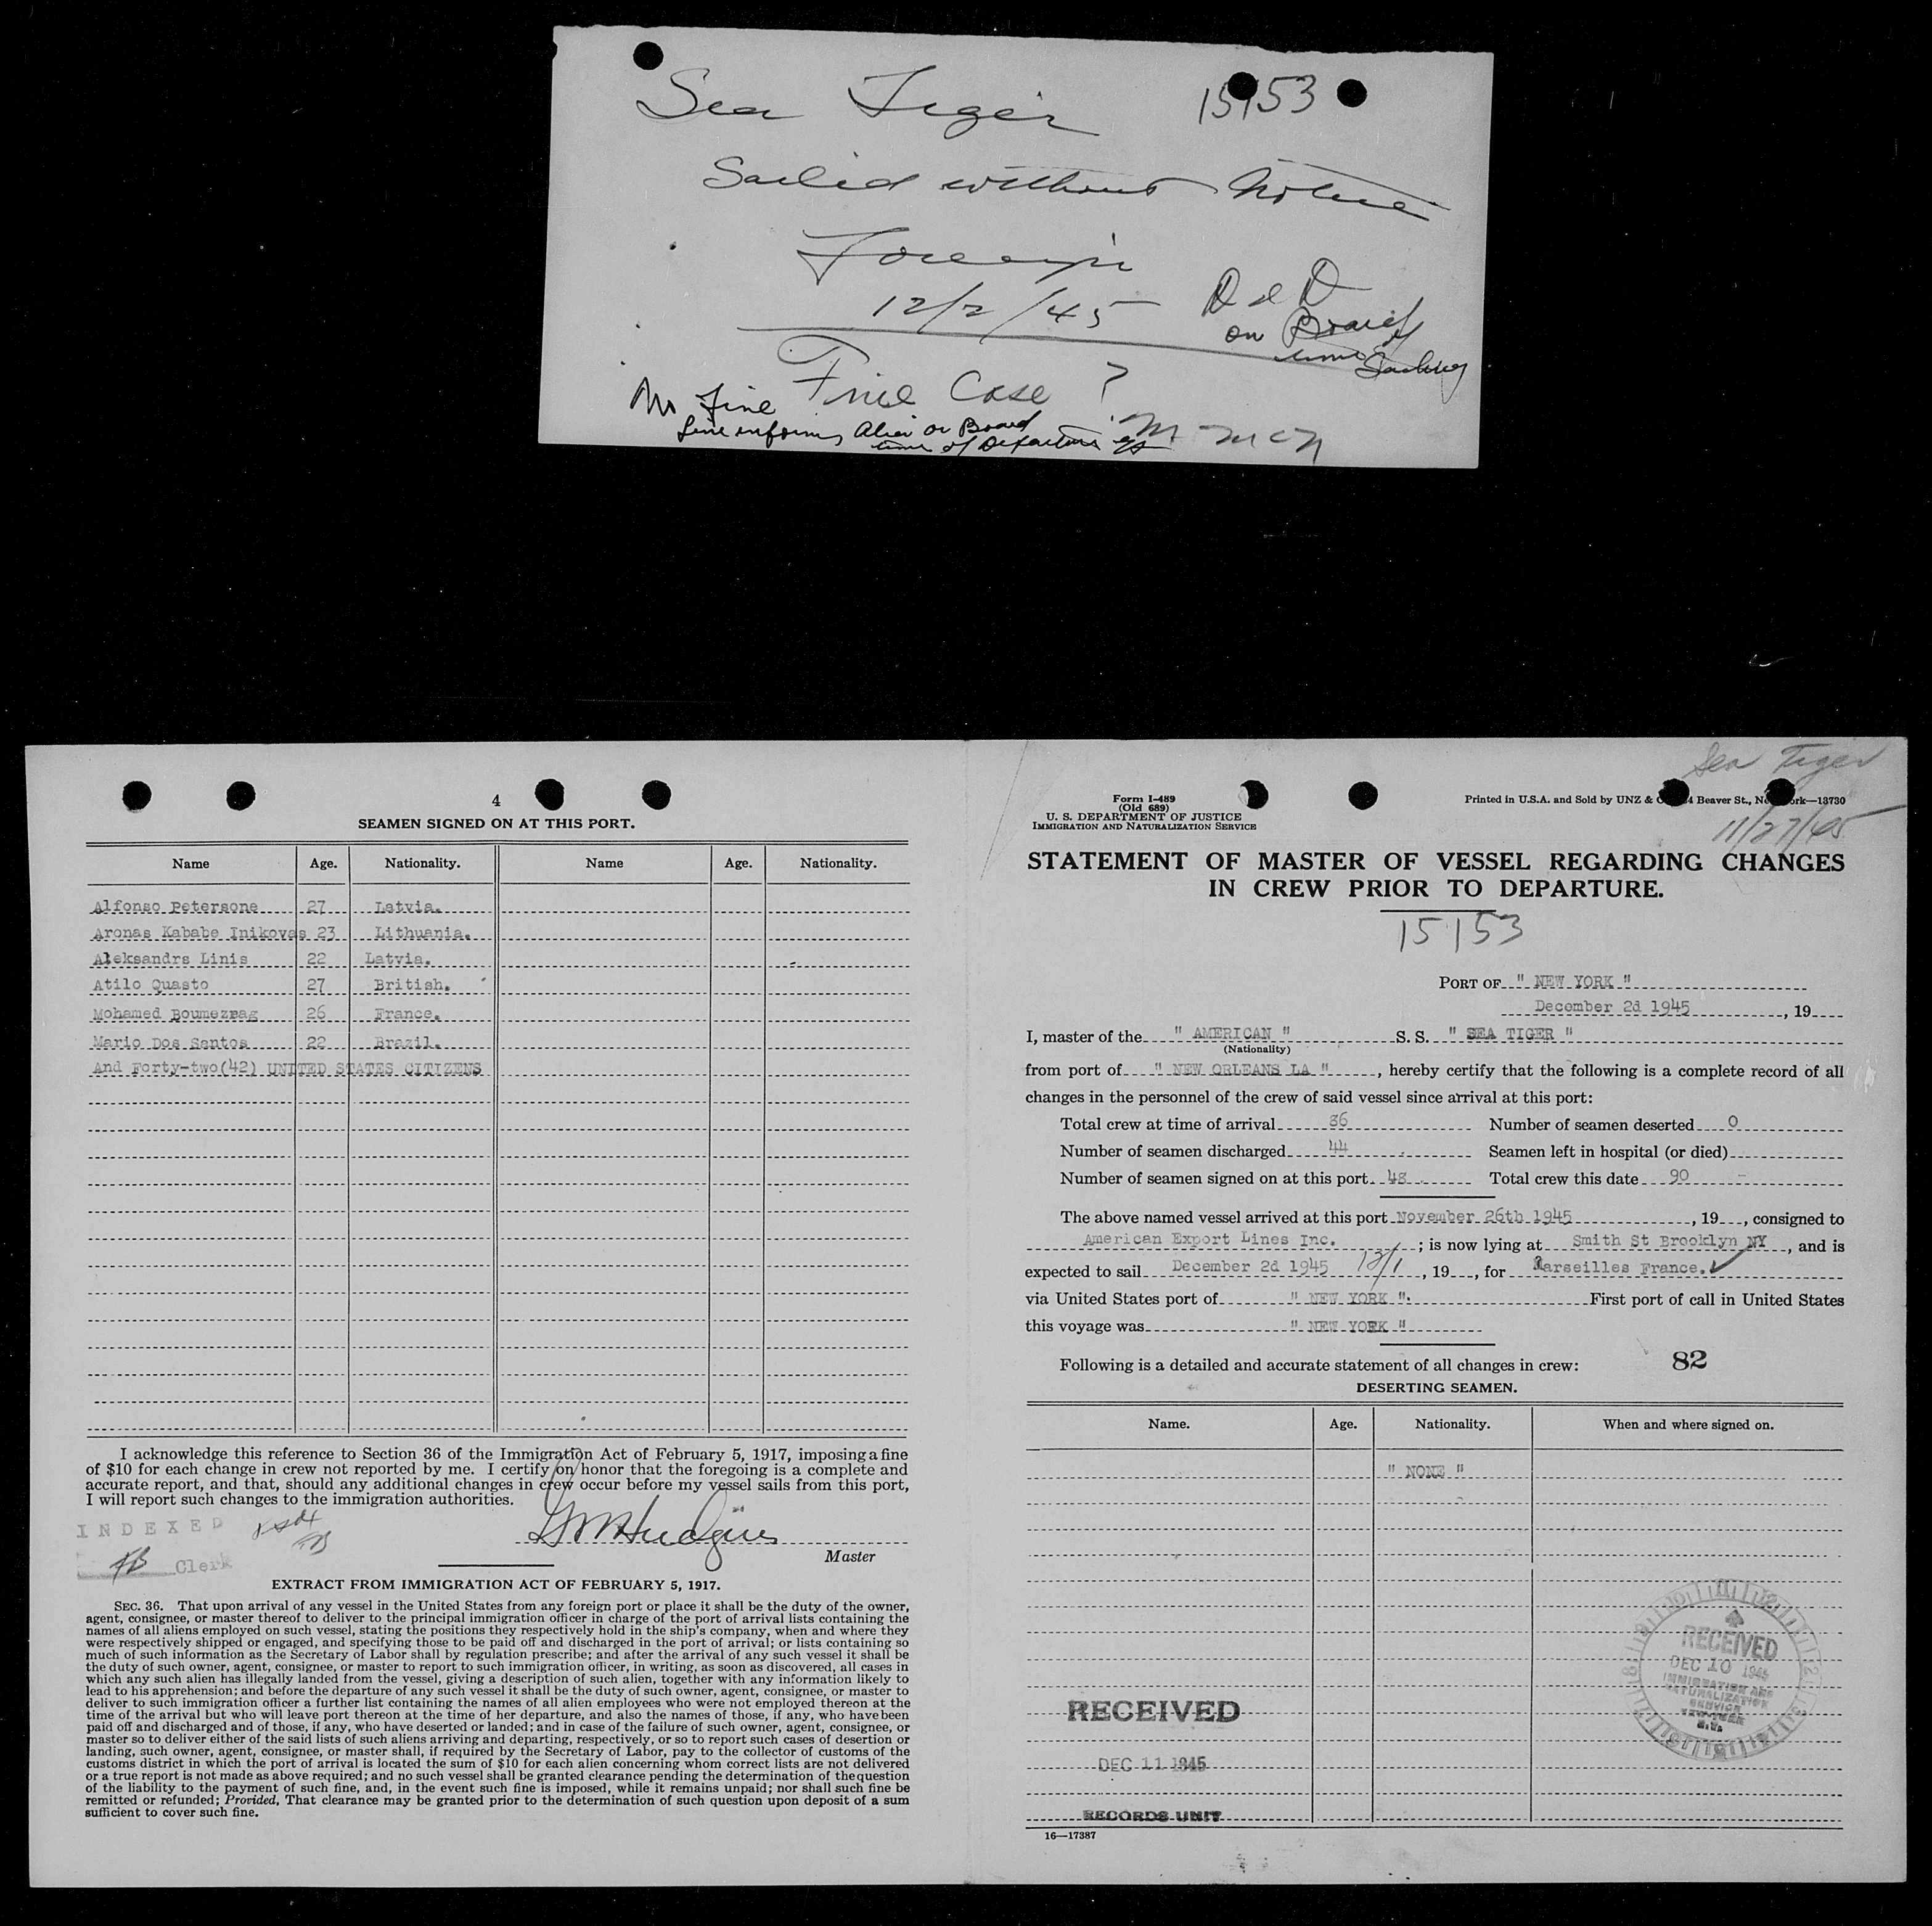 Sea Tiger 15153
Sailed without Notice
Foreign
12/2/45
D & D
on Board
time Sailing
Fine Case ?
No fine
Line informs Alien on Board
time of Departure
4
SEAMEN SIGNED ON AT THIS PORT.
Name Age. Nationality. Name Age. Nationality.
Alfonso Petersone 27 Latvia.
Aronas Kababe Inikovas 23 Lithuania.
Aleksandrs Linis 22 Latvia.
Atilo Quasto 27 British.
Mohamed Boumezrag 26 France.
Mario Dos Santos 22 Brazil.
And Forty-two(42) UNITED STATES CITIZENS
I acknowledge this reference to Section 36 of the Immigration Act of February 5, 1917, imposing a fine
of $10 for each change in crew not reported by me. I certify on honor that the foregoing is a complete and
accurate report, and that, should any additional changes in crew occur before my vessel sails from this port,
I will report such changes to the immigration authorities.
INDEXED
Clerk
GMHudgins
Master
EXTRACT FROM IMMIGRATION ACT OF FEBRUARY 5, 1917.
SEC. 36. That upon arrival of any vessel in the United States from any foreign port or place it shall be the duty of the owner,
agent, consignee, or master thereof to deliver to the principal immigration officer in charge of the port of arrival lists containing the
names of all aliens employed on such vessel, stating the positions they respectively hold in the ship's company, when and where they
were respectively shipped or engaged, and specifying those to be paid off and discharged in the port of arrival; or lists containing so
much of such information as the Secretary of Labor shall by regulation prescribe; and after the arrival of any such vessel it shall be
the duty of such owner, agent, consignee, or master to report to such immigration officer, in writing, as soon as discovered, all cases in
which any such alien has illegally landed from the vessel, giving a description of such alien, together with any information likely to
lead to his apprehension; and before the departure of any such vessel it shall be the duty of such owner, agent, consignee, or master to
deliver to such immigration officer a further list containing the names of all alien employees who were not employed thereon at the
time of the arrival but who will leave port thereon at the time of her departure, and also the names of those, if any, who have been
paid off and discharged and of those, if any, who have deserted or landed; and in case of the failure of such owner, agent, consignee, or
master so to deliver either of the said lists of such aliens arriving and departing, respectively, or so to report such cases of desertion or
landing, such owner, agent, consignee, or master shall, if required by the Secretary of Labor, pay to the collector of customs of the
customs district in which the port of arrival is located the sum of $10 for each alien concerning whom correct lists are not delivered
or a true report is not made as above required; and no such vessel shall be granted clearance pending the determination of the question
of the liability to the payment of such fine, and, in the event such fine is imposed, while it remains unpaid; nor shall such fine be
remitted or refunded; Provided, That clearance may be granted prior to the determination of such question upon deposit of a sum
sufficient to cover such fine.
Sea Tiger
11/27/45
Form I-489
(Old 689)
U. S. DEPARTMENT OF JUSTICE
IMMIGRATION AND NATURALIZATION SERVICE
Printed in U.S.A. and Sold by UNZ & 4 Beaver St., New York—13730
STATEMENT OF MASTER OF VESSEL REGARDING CHANGES
IN CREW PRIOR TO DEPARTURE.
15153
PORT OF " NEW YORK "
December 2d 1945, 19
I, master of the " AMERICAN " S. S. " SEA TIGER "
(Nationality)
from port of " NEW ORLEANS LA ", hereby certify that the following is a complete record of all
changes in the personnel of the crew of said vessel since arrival at this port:
Total crew at time of arrival 86 Number of seamen deserted 0
Number of seamen discharged 44 Seamen left in hospital (or died)
Number of seamen signed on at this port 48 Total crew this date 90
The above named vessel arrived at this port November 26th 1945, 19, consigned to
American Export Lines Inc. ; is now lying at Smith St Brooklyn NY, and is
expected to sail December 2d 1945 12/1, 19, for Marseilles France.
via United States port of " NEW YORK ". First port of call in United States
this voyage was " NEW YORK "
Following is a detailed and accurate statement of all changes in crew: 82
DESERTING SEAMEN.
Name. Age. Nationality. When and where signed on.
" NONE "
RECEIVED
DEC 10 1945
IMMIGRATION AND
NATURALIZATION
SERVICE
NEW YORK
N.Y.
RECEIVED
DEC 11 1945
RECORDS UNIT
16—17387